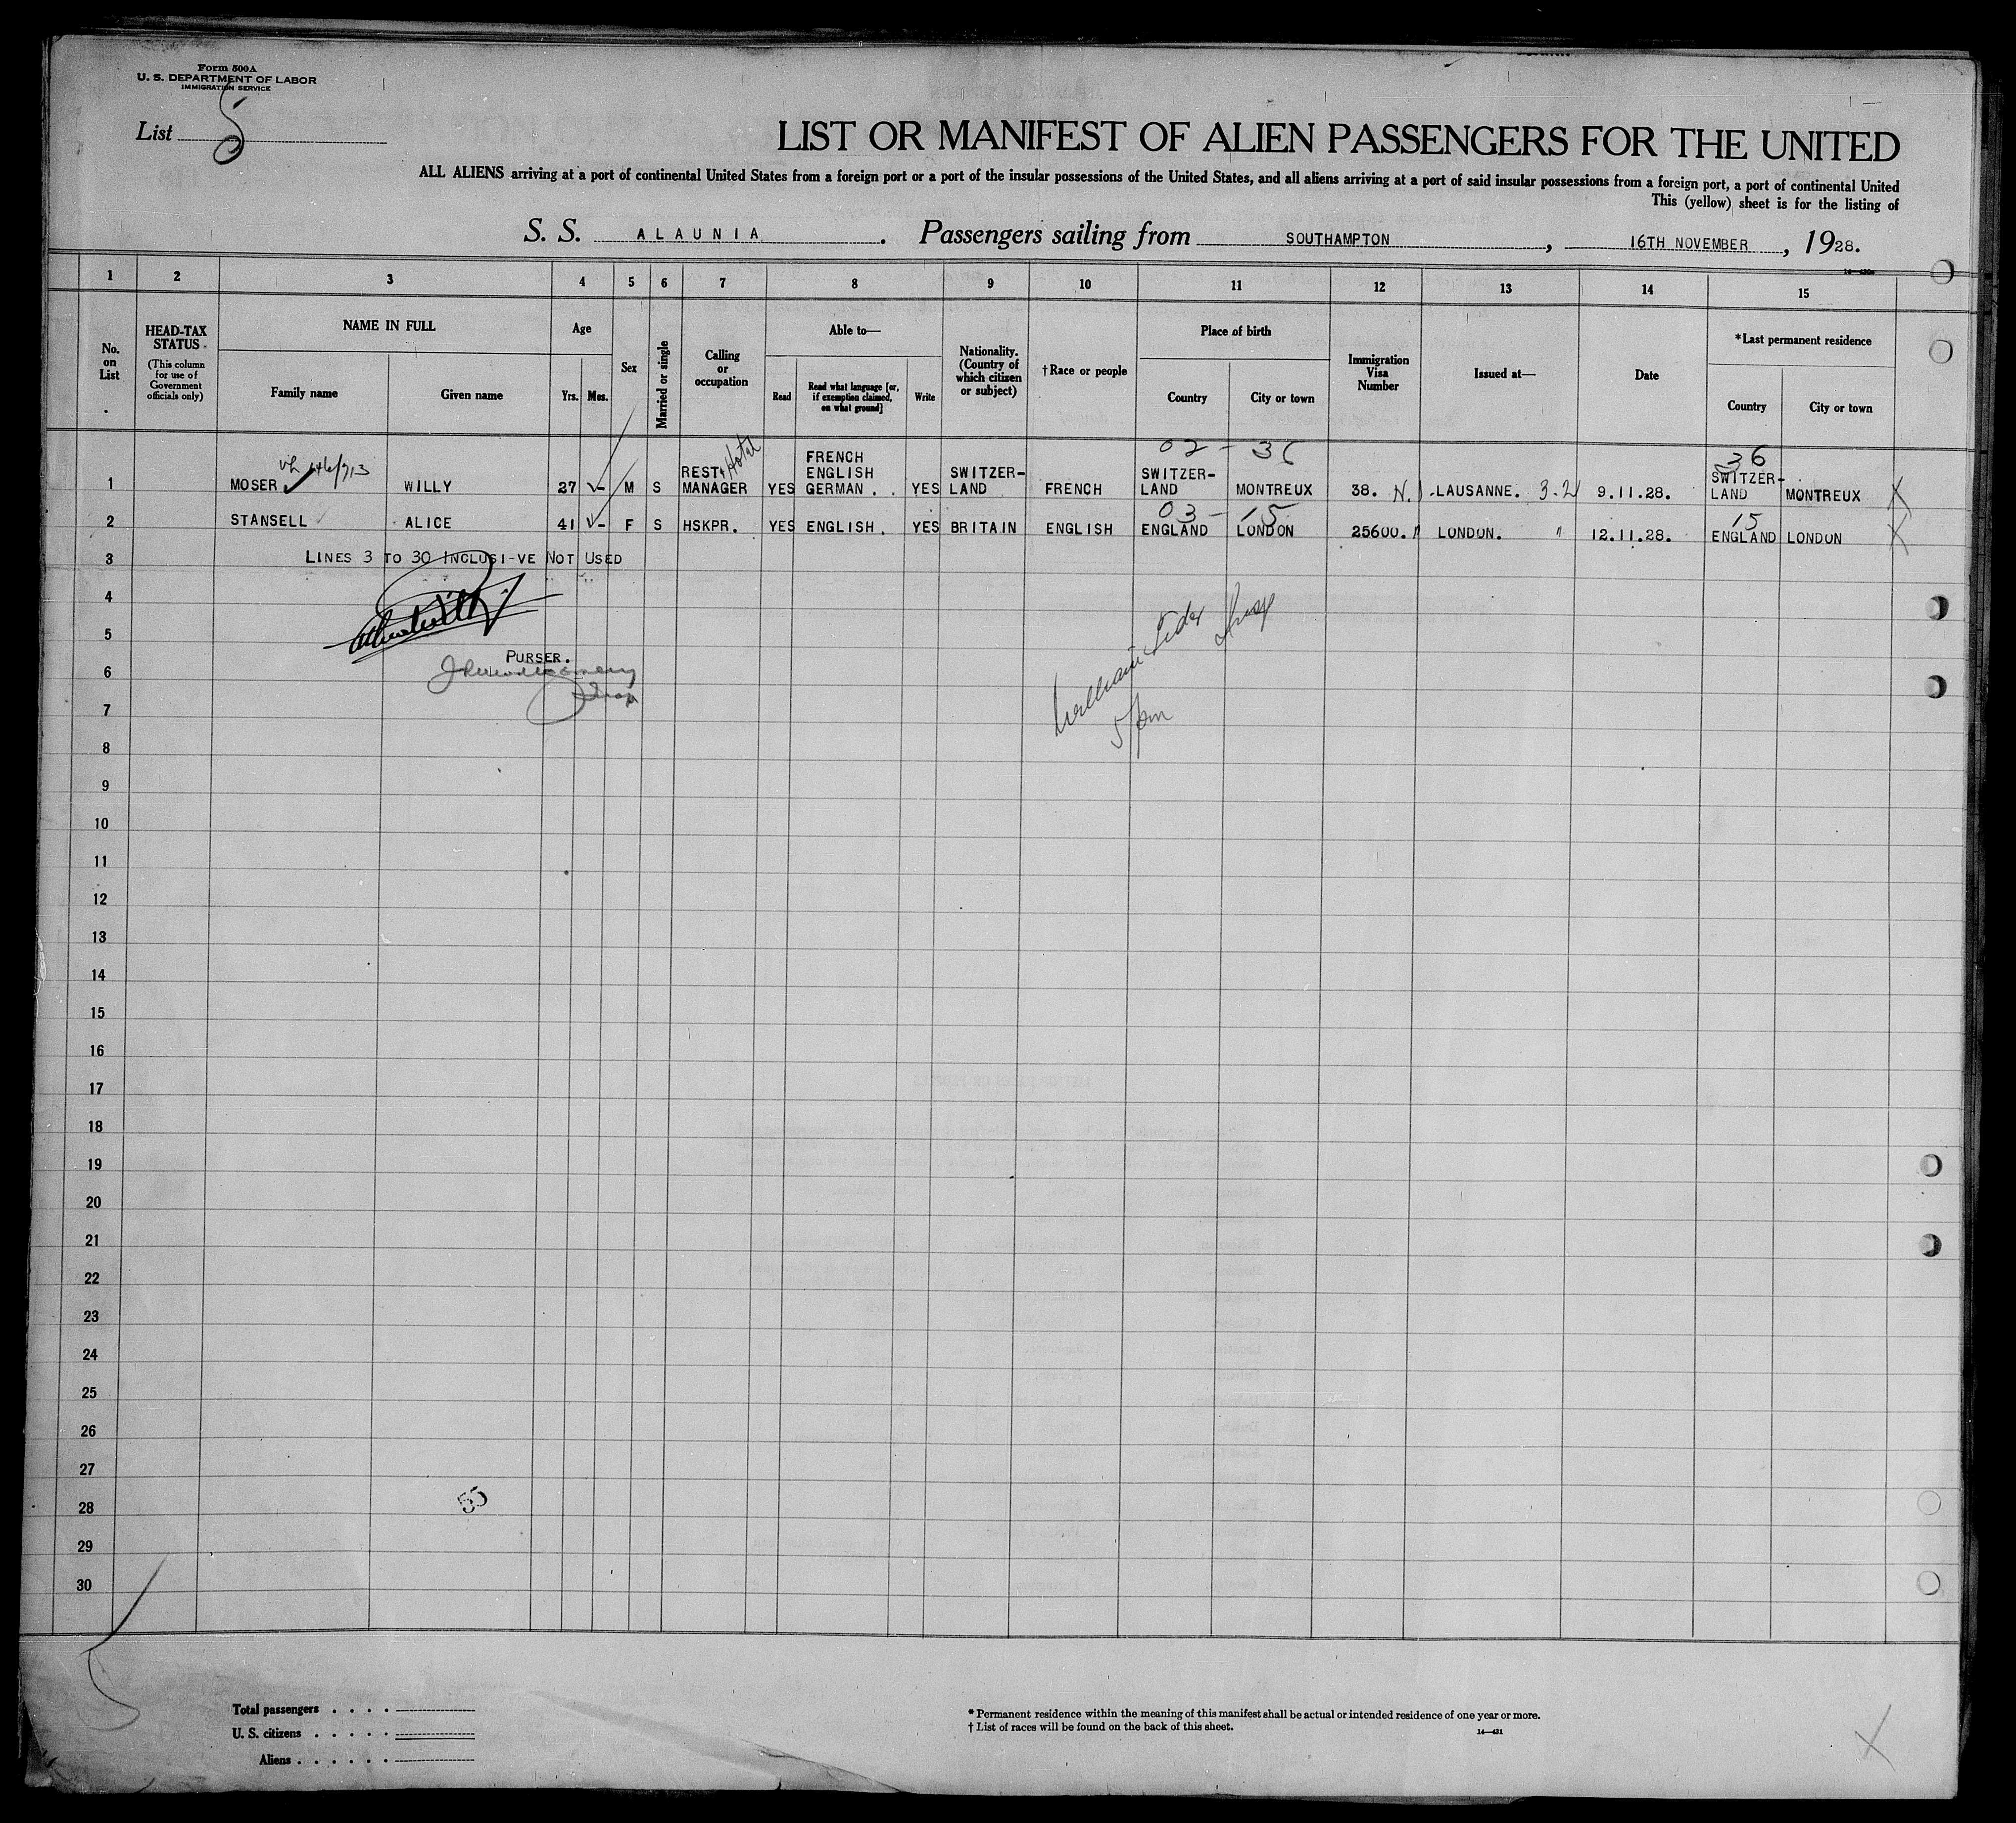 Form 500A
U. S. DEPARTMENT OF LABOR
IMMIGRATION SERVICE
List 5
LIST OR MANIFEST OF ALIEN PASSENGERS FOR THE UNITED
ALL ALIENS arriving at a port of continental United States from a foreign port or a port of the insular possessions of the United States, and all aliens arriving at a port of said insular possessions from a foreign port, a port of continental United
This (yellow) sheet is for the listing of
S. S. ALAUNIA. Passengers sailing from SOUTHAMPTON, 16TH NOVEMBER, 1928.
1 2 3 4 5 6 7 8 9 10 11 12 13 14 15
No. on List
HEAD-TAX STATUS (This column for use of Government officials only)
NAME IN FULL
Family name Given name
Age
Yrs. Mos.
Sex
Married or single
Calling or occupation
Able to—
Read Read what language [or, if exemption claimed, on what ground] Write
Nationality. (Country of which citizen or subject)
†Race or people
Place of birth
Country City or town
Immigration Visa Number
Issued at—
Date
*Last permanent residence
Country City or town
02 - 36 36
1 MOSER WILLY 27 - M S REST & Hotel MANAGER YES FRENCH ENGLISH GERMAN. . YES SWITZER-LAND FRENCH SWITZER-LAND MONTREUX 38. N. LAUSANNE. 3-2 9.11.28. SWITZER-LAND MONTREUX X
03 - 15 15
2 STANSELL ALICE 41 - F S HSKPR. YES ENGLISH. YES BRITAIN ENGLISH ENGLAND LONDON 25600. " LONDON. " 12.11.28. ENGLAND LONDON X
3 LINES 3 TO 30 INCLUSI-VE NOT USED
4
5
PURSER.
6
7
William
5 pm
8
9
10
11
12
13
14
15
16
17
18
19
20
21
22
23
24
25
26
27
28
55
29
30
Total passengers . . . .
U. S. citizens . . . . .
Aliens . . . . . .
* Permanent residence within the meaning of this manifest shall be actual or intended residence of one year or more.
† List of races will be found on the back of this sheet.
14—431
X